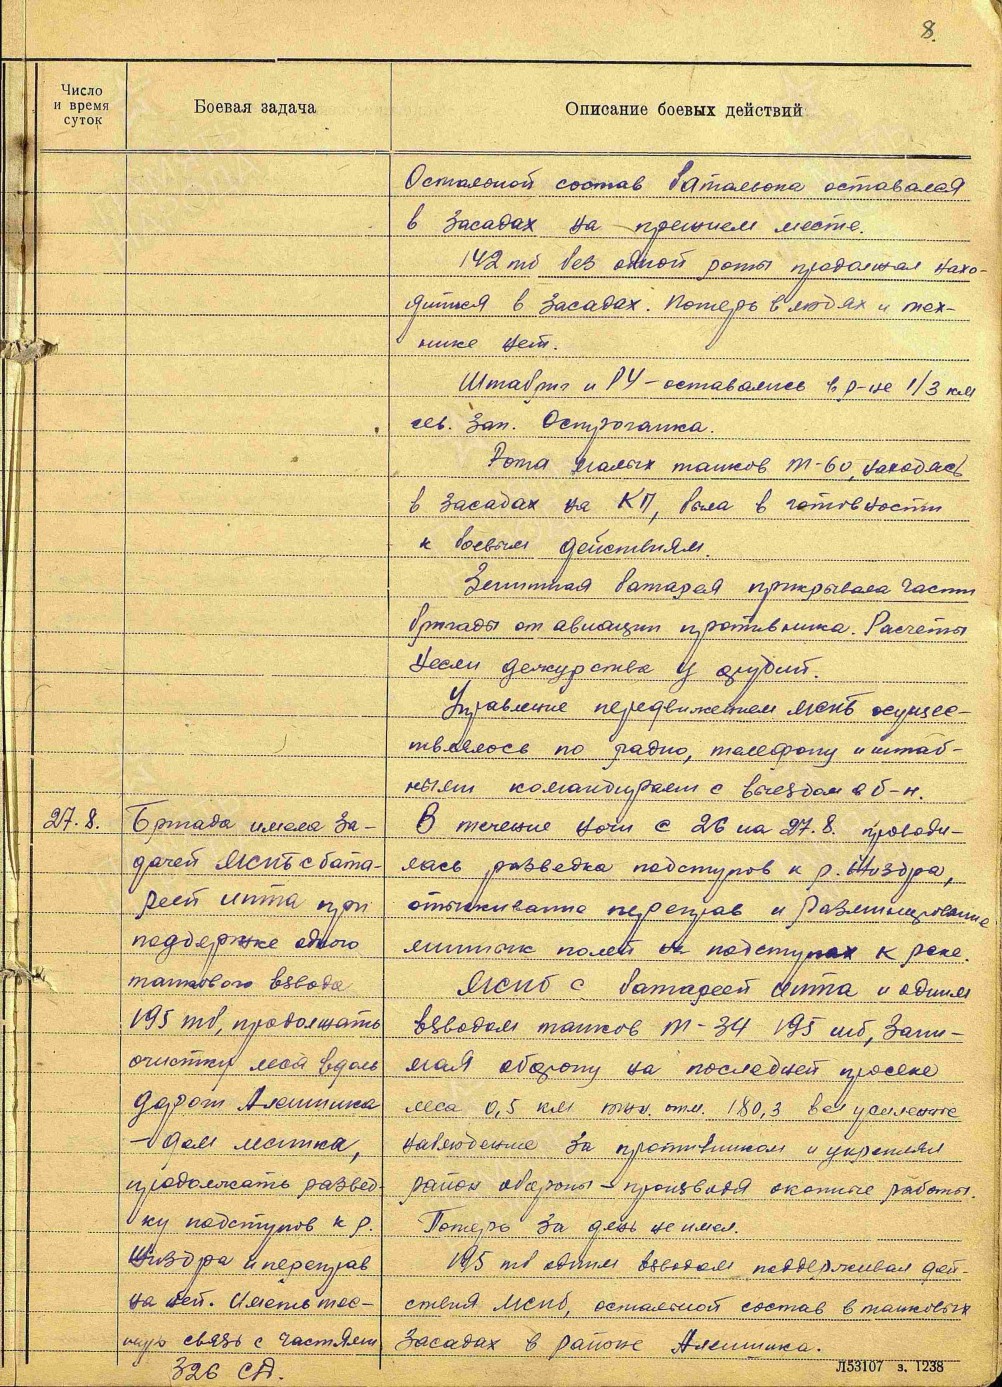 8.
Число
и время
суток
Боевая задача
Описание боевых действий
Остальной состав батальона оставался
в засадах на прежнем месте.
142 тб без одной роты продолжал нахо-
диться в засадах. Потерь в людях и тех-
нике нет.
Штабриг и РУ - оставались в р-не 1/3 км
сев. зап. Острогамка.
Рота малых танков Т-60, находясь
в засадах на КП, была в готовности
к боевым действиям.
Зенитная батарея прикрывала части
бригады от авиации противника. Расчеты
несли дежурства у орудий.
Управление передвижением МСПБ осущес-
твлялось по радио, телефону и штаб-
ными командирами с выездом в б-н.
27.8.
Бригада имела за-
дачей МСПБ с бата-
реей ипта при
поддержке одного
танкового взвода
195 тб, продолжать
очистку леса вдоль
дорог Алешинка
- дом лесника,
продолжать развед-
ку подступов к р.
Жиздра и переправ
на ней. Иметь тес-
ную связь с частями
326 СД.
В течение ночи с 26 на 27.8. проводи-
лась разведка подступов к р. Жиздра,
отыскивание переправ и разминирование
минных полей на подступах к реке.
МСПБ с батареей ипта и одним
взводом танков Т-34 195 тб, зани-
мая оборону на последней просеке
леса 0,5 км южн. отм. 180,3 вел усиленное
наблюдение за противником и укреплял
район обороны - производя окопные работы.
Потерь за день не имел.
195 тб одним взводом поддерживал дей-
ствия МСПБ, остальной состав в танковых
засадах в районе Алешинка.
Л53107 з. 1238